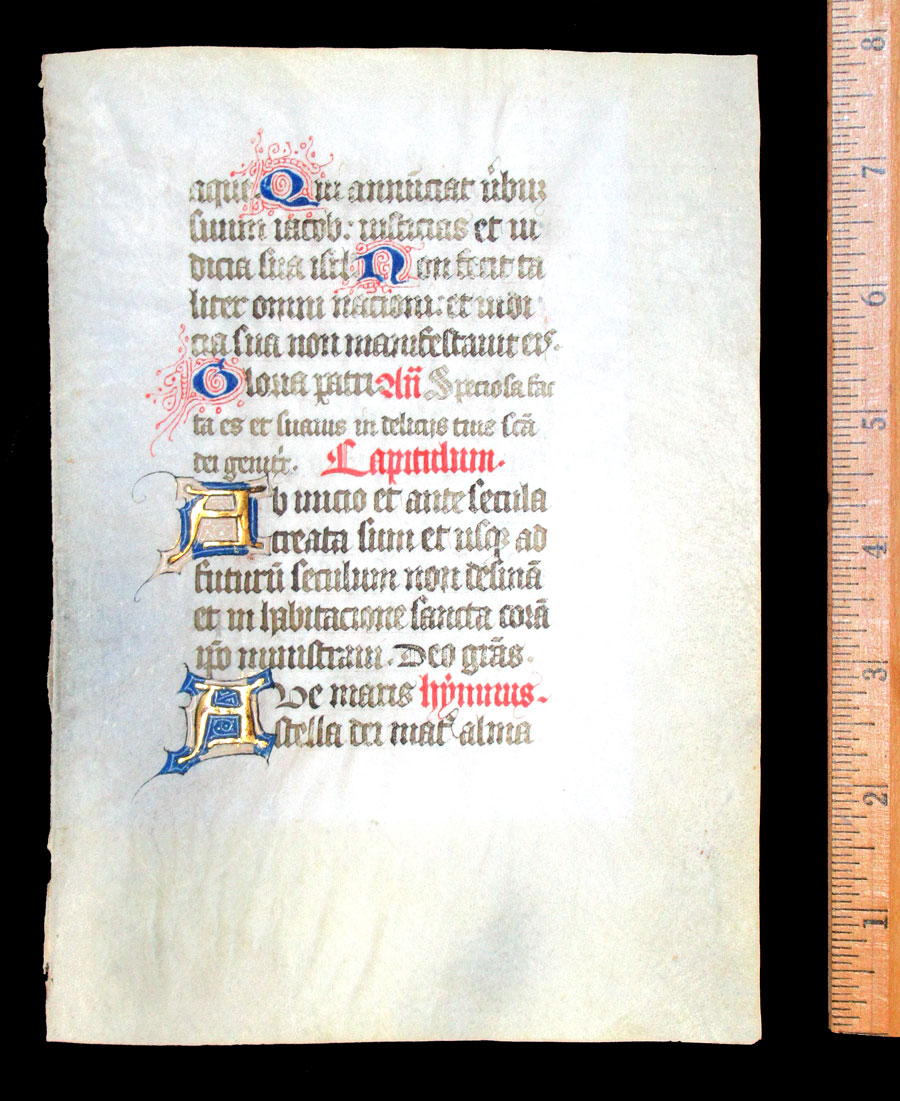 aque Qui annūciat ūbuꝫ
suum iacob: iusticias et iu
dicia sua isrl̄ Non fecit ta
liter omni nacioni: et iudi
cia sua non manifestauit eis.
Gloria patri Añ Speciosa fac
ta es et suauis in delicijs tuis scā
dei genitr̄. Capitulum.
Ab inicio et ante secula
creata sum et usqꝫ ad
futurū seculum non desinā
et in habitacione sancta corā
ip̄o ministraui. Deo grās.
Ave maris hymnus.
stella dei mat᷑ alma
8
7
6
5
4
3
2
1